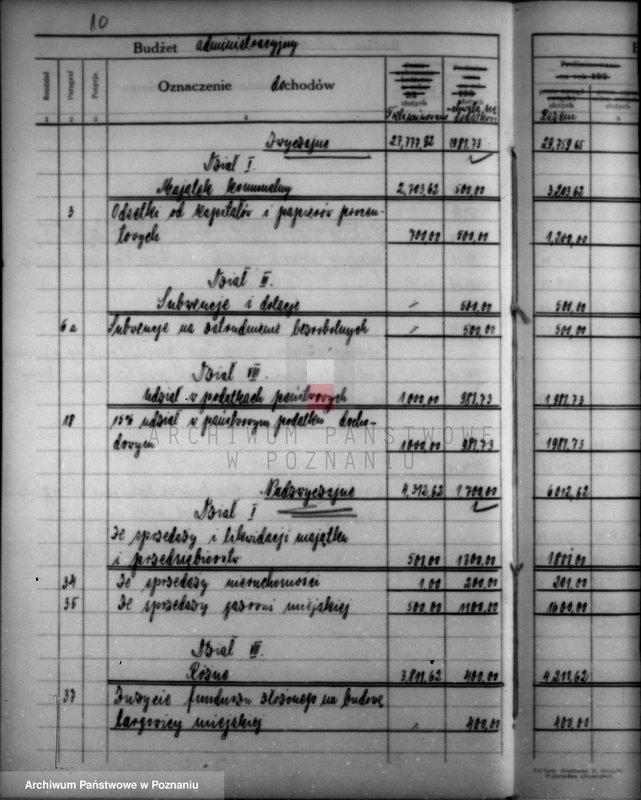 10
Budżet administracyjny
Rozdział Paragraf Pozycja Oznaczenie dochodów Preliminowano złotych złotych dodatkowo złotych Razem
1 2 3 4
Zwyczajne 27,777,92 1981,73 29,759,65
Dział I.
Majątek komunalny 2,703,62 500,00 3,203,62
3 Odsetki od kapitałów i papierów procen-
towych 700,00 500,00 1,200,00
Dział II.
Subwencje i dotacje - 500,00 500,00
6a Subwencje na zatrudnienie bezrobotnych - 500,00 500,00
Dział VIII.
Udział w podatkach państwowych 1000,00 981,73 1,981,73
18 15% udział w państwowym podatku docho-
dowym 1000,00 981,73 1981,73
ARCHIWUM PAŃSTWOWE
W POZNANIU
Nadzwyczajne 4,312,62 1.700,00 6012,62
Dział I
Ze sprzedaży i likwidacji majątku
i przedsiębiorstw 501,00 1300,00 1801,00
34 Ze sprzedaży nieruchomości 1.00 200,00 201,00
35 Ze sprzedaży gazowni miejskiej 500,00 1100,00 1600,00
Dział VII.
Różne 3,811,62 400,00 4,211,62
37 Zużycie funduszu złożonego na budowę
targowicy miejskiej - 400,00 400,00
Zakłady Graficzne B. Szczuki
Wąbrzeźno (Pomorze)
Archiwum Państwowe w Poznaniu